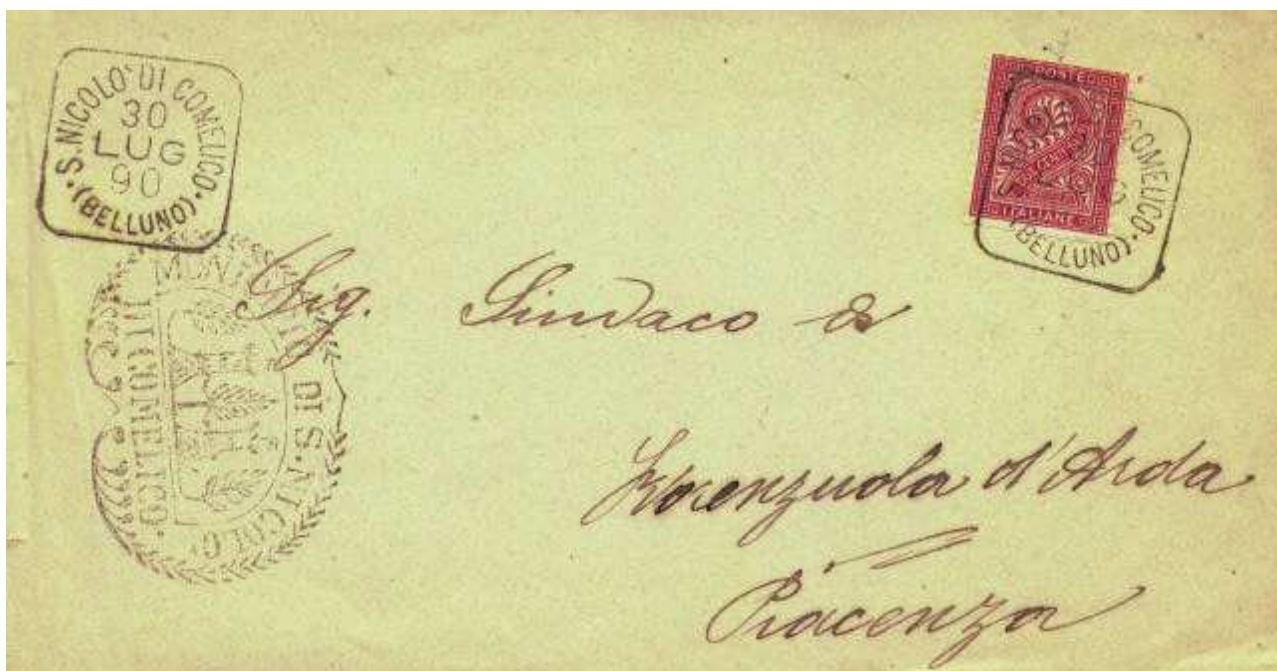 S. NICOLO' DI COMELICO
30
LUG
90
(BELLUNO)
POSTE
2
ITALIANE
COMELICO
(BELLUNO)
DI S. NICOLO
DI COMELICO
Sig. Sindaco di
Fiorenzuola d'Arda
Piacenza